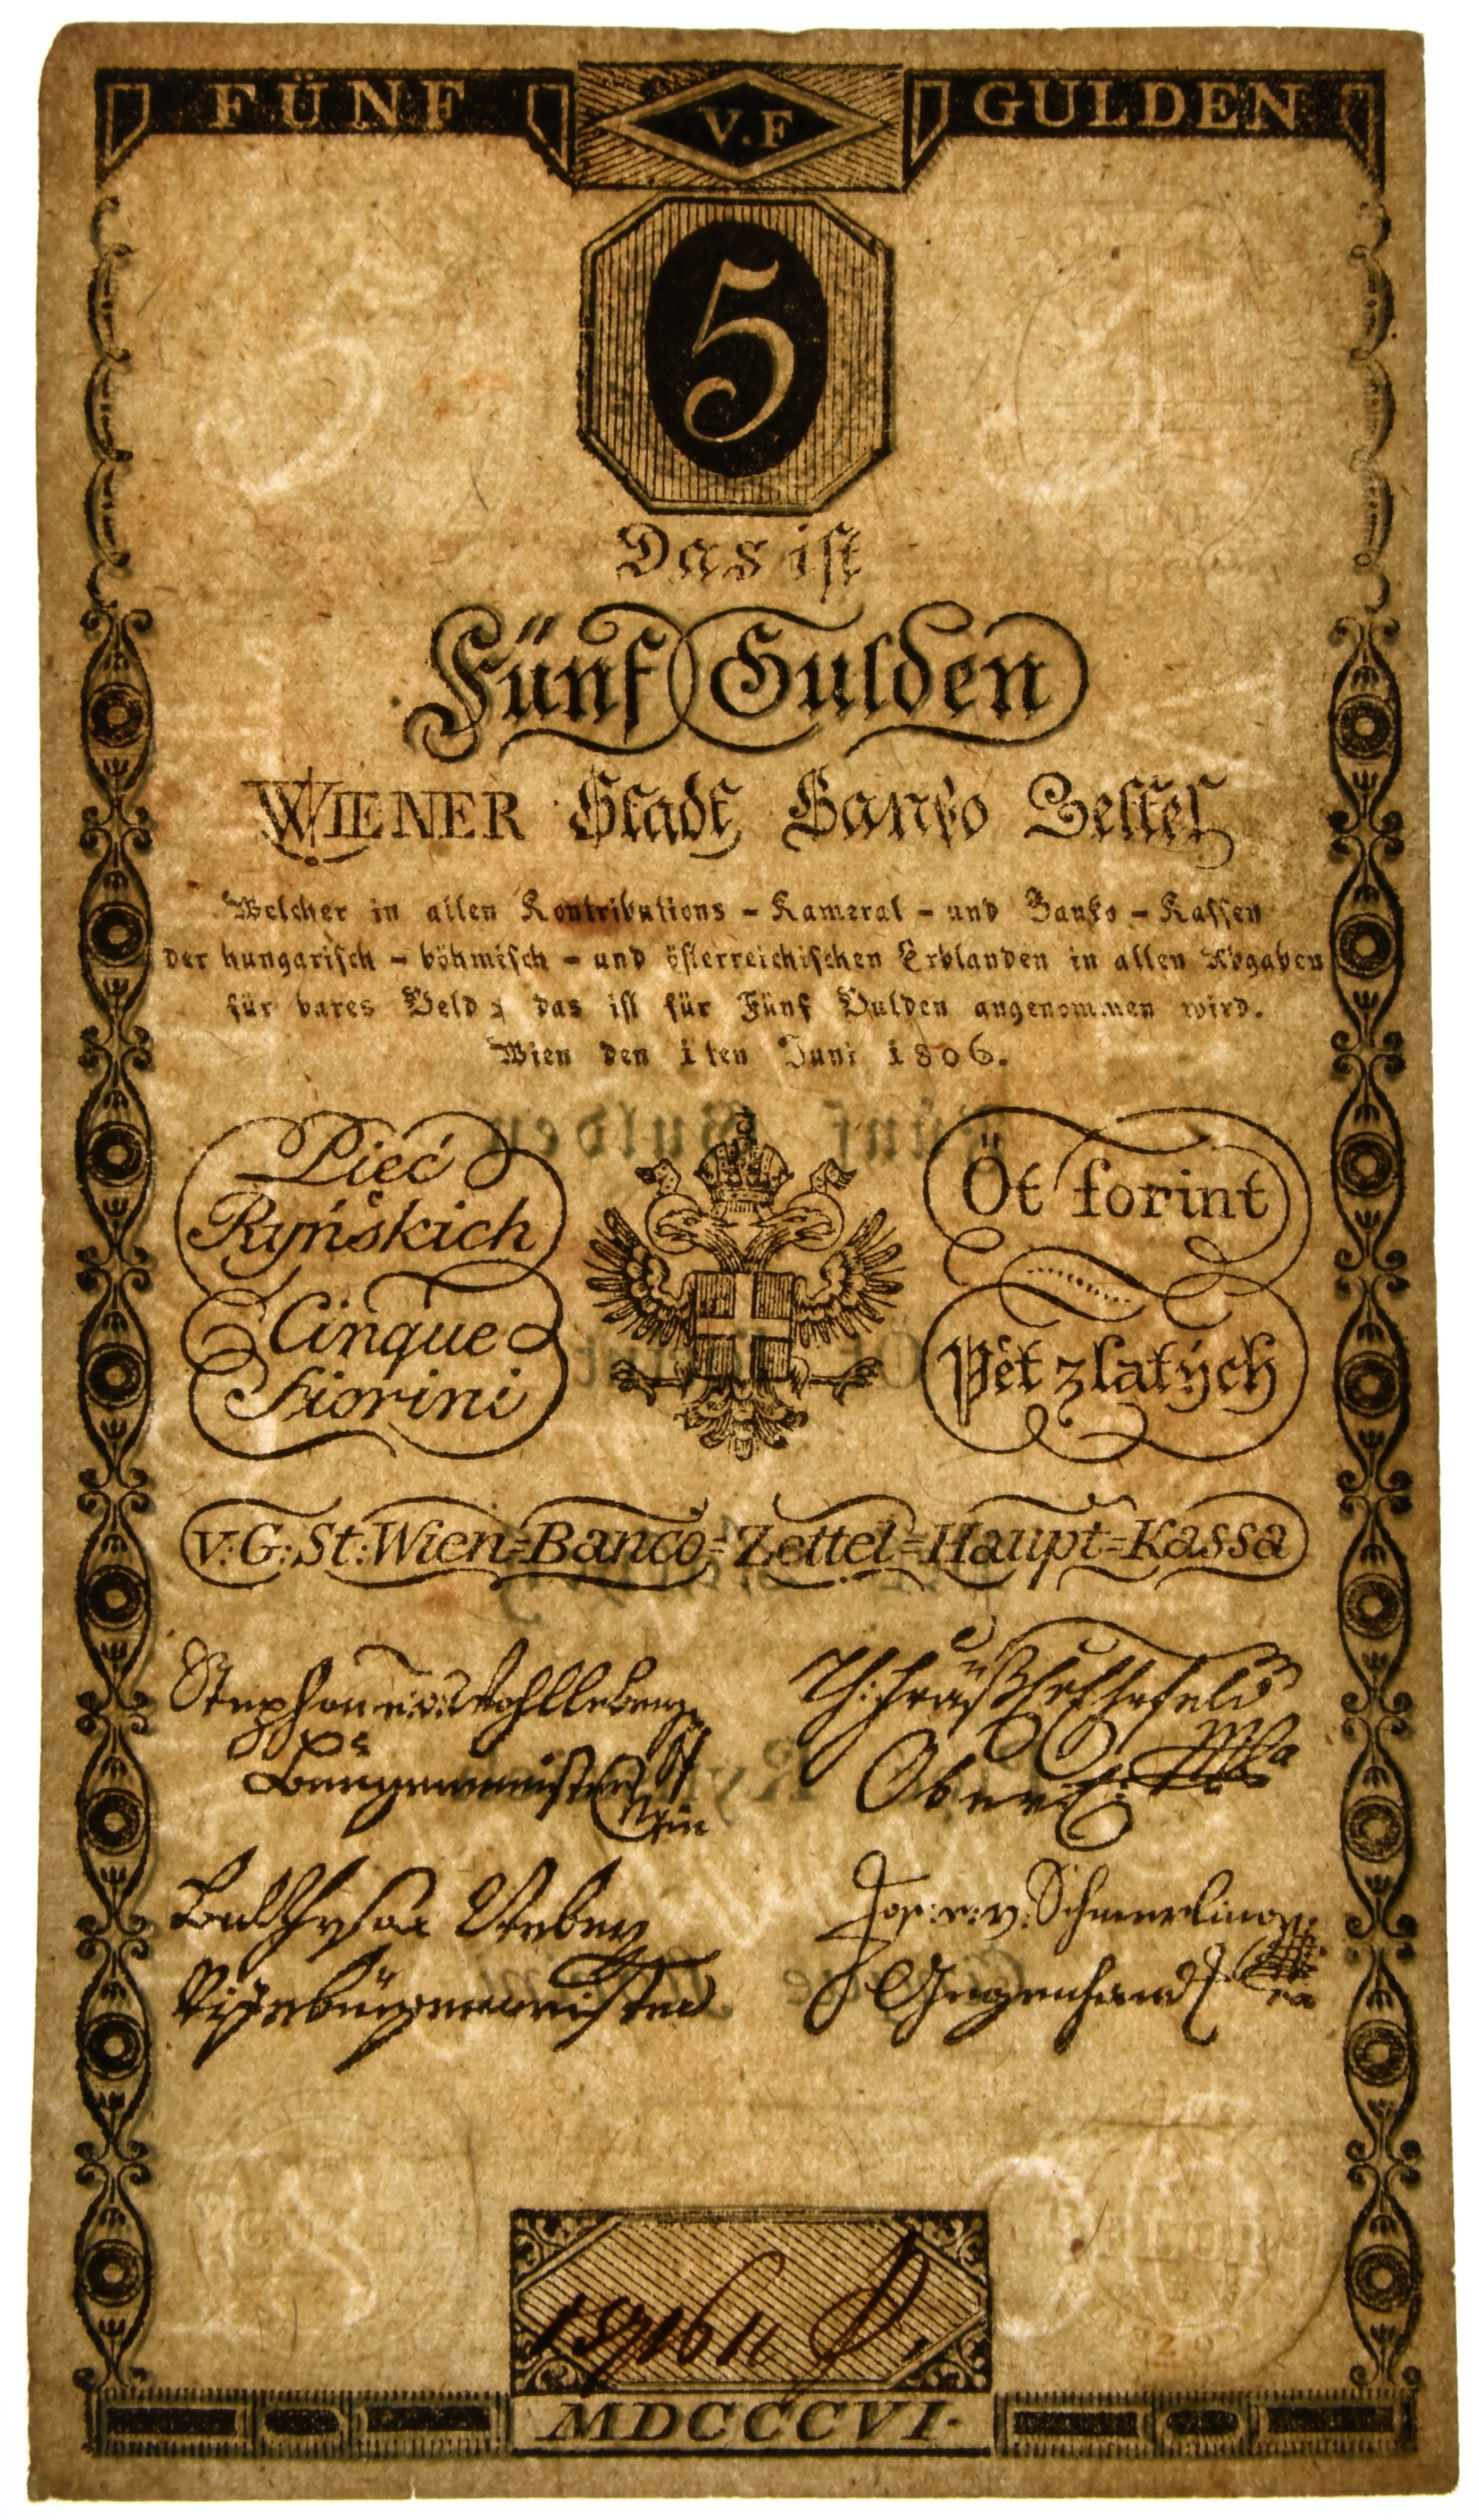 FÜNF V.F GULDEN
5
Das ist
Fünf Gulden
WIENER Stadt Banko Zettel
Welcher in allen Kontributions - Kameral - und Banko - Kassen
der hungarisch - böhmisch - und österreichischen Erblanden in allen Abgaben
für bares Geld, das ist für Fünf Gulden angenommen wird.
Wien den 1ten Juni 1806.
Fünf Gulden
Pieć
Ryńskich
Cinque
fiorini
Öt forint
Pět zlatých
V: G: St: Wien=Banco=Zettel=Haupt=Kassa
Stephan e: v: Wohlleben
Burgermeister
Ober
Vizebürgermeister
Jos: e: v: Schmerling
Gegenhand
MDCCCVI.